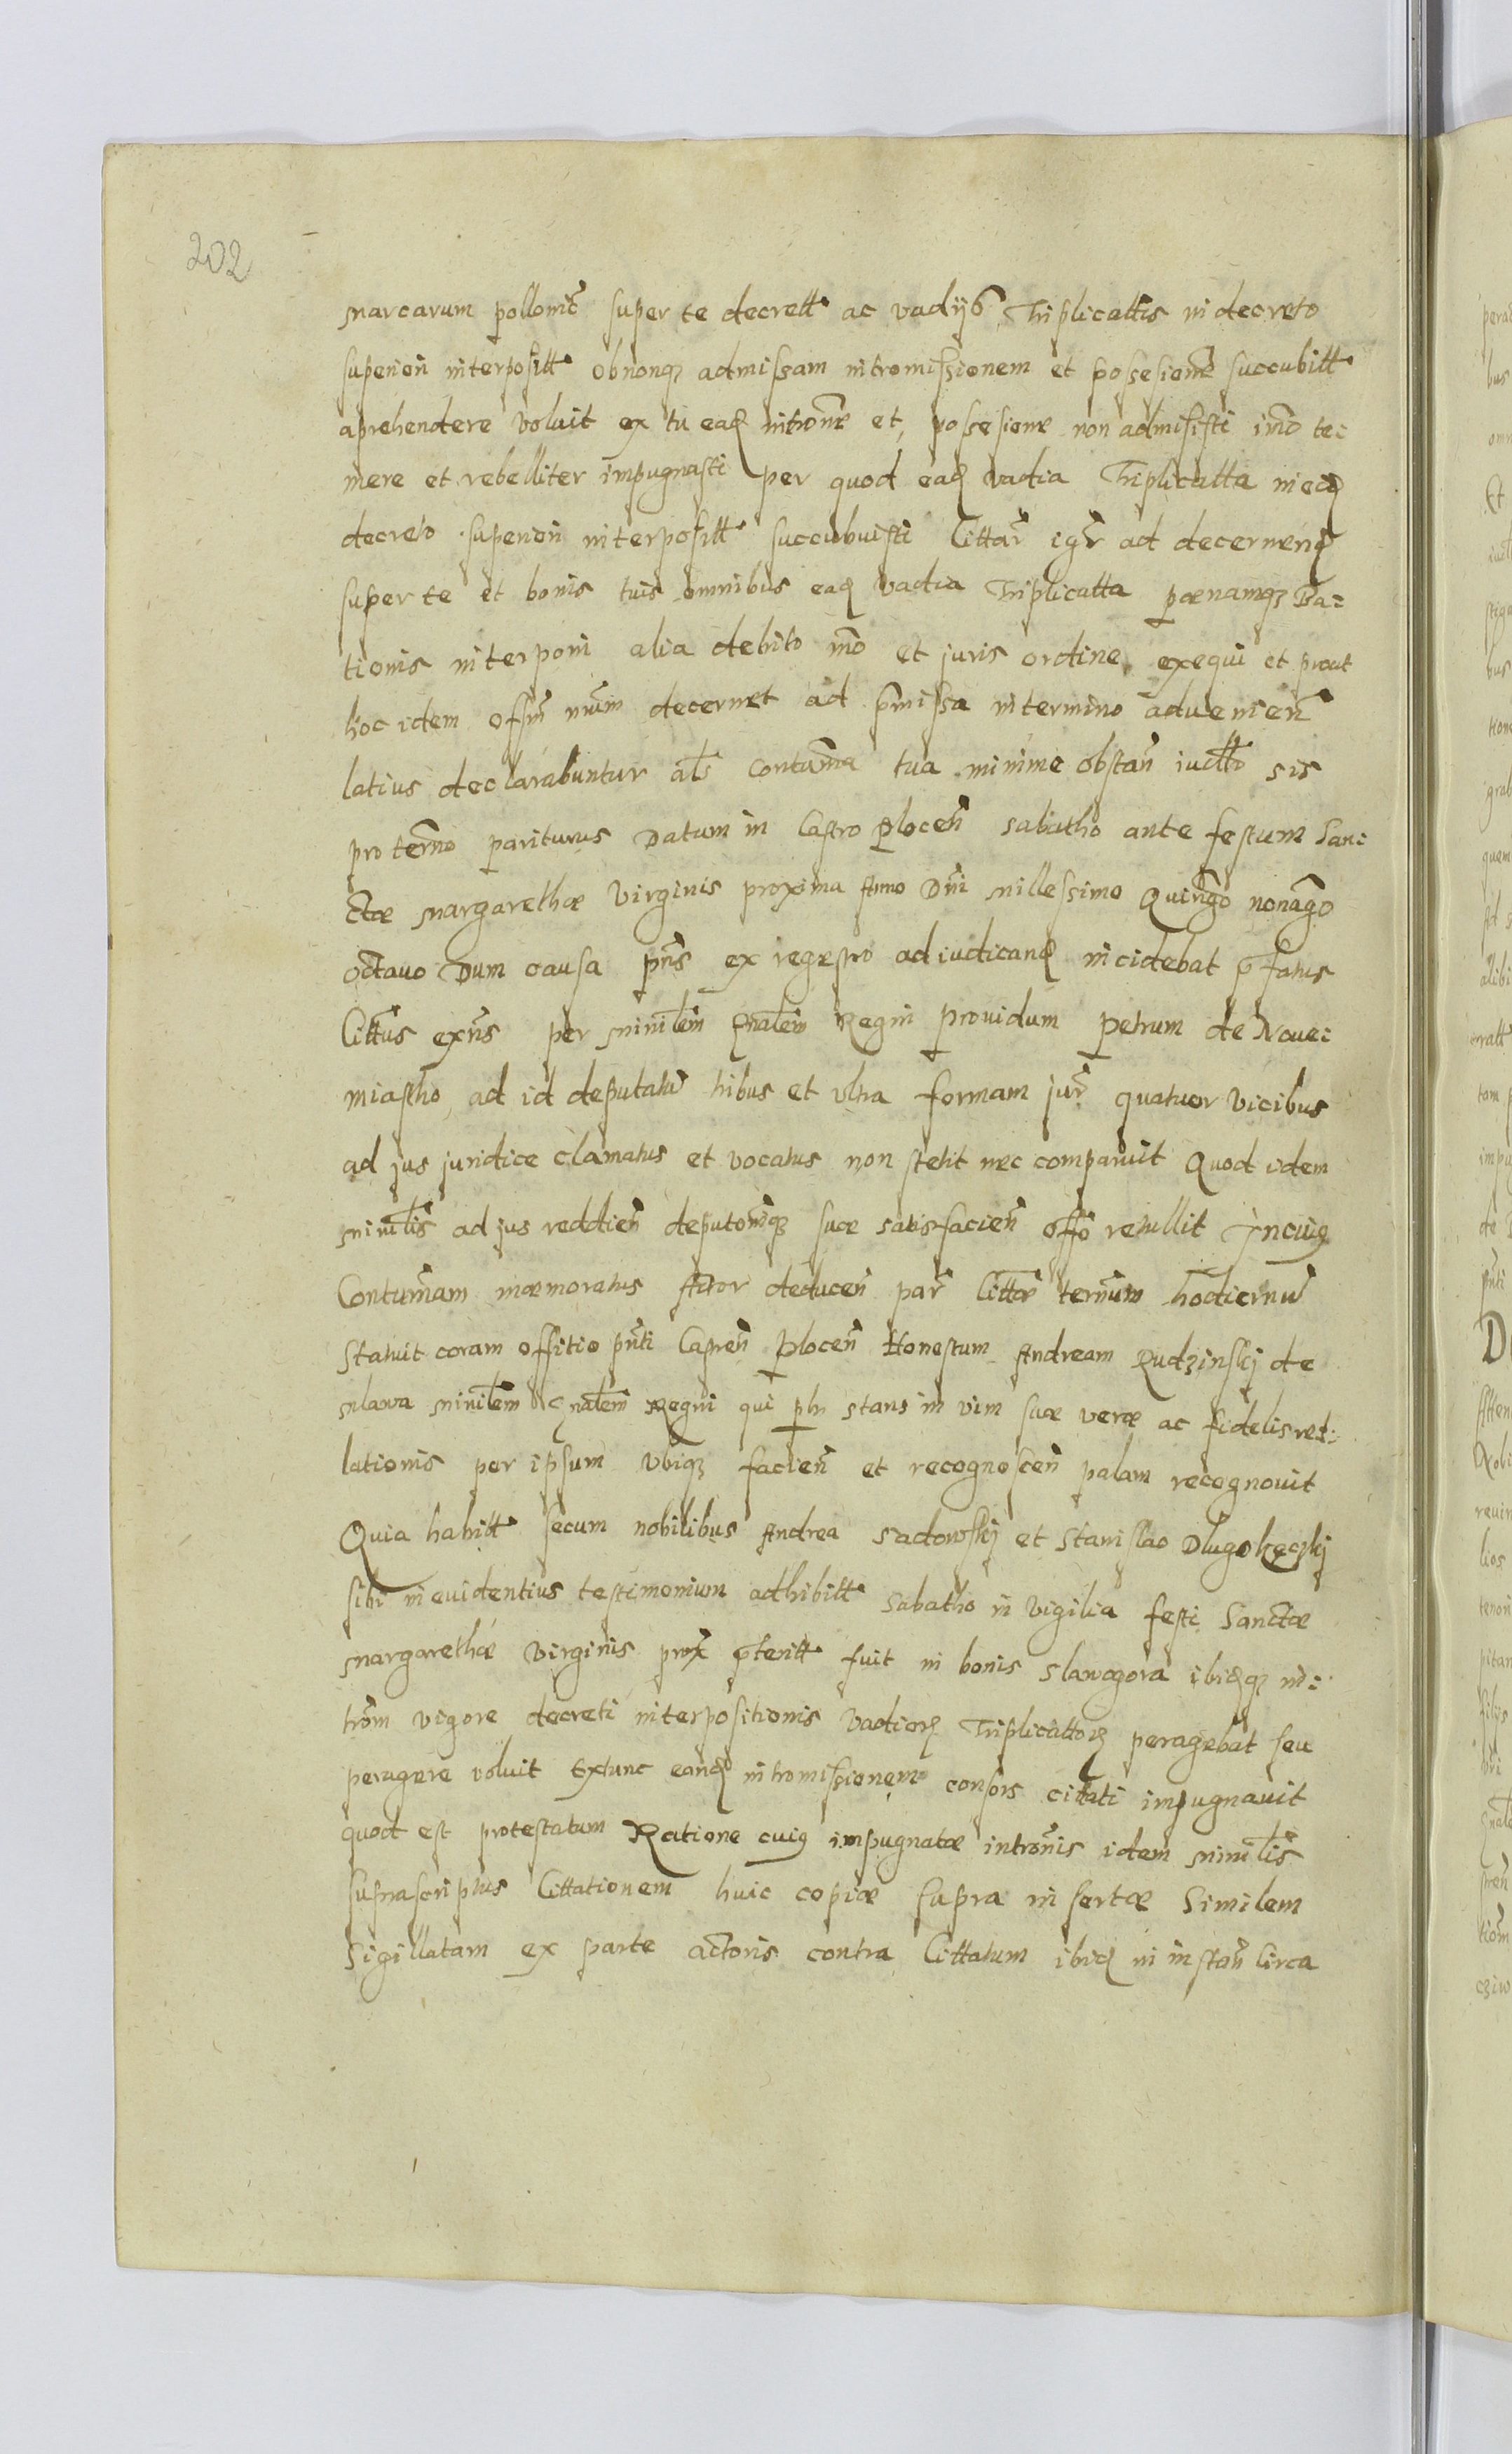 202
Marcarum pollonic̃ super te decrett. ac vadijs Triplicattis in decreto
superiori interposittt. ob nonqʒ admissam intromissionem et possesionẽ succubitt.
aprehendere voluit ex tu eadʒ intronẽ et possesionẽ non admisisti imõ te:
mere et rebelliter impugnasti per quod eadʒ vadia Triplicatta in eodʒ
decreto superiori interposittt. succubuisti Cittar̃ igr̃ ad decernendʒ
super te et bonis tuis omnibus eadʒ vadia Triplicatta pœnamqʒ Ba:
tionis interponi alia debito mõ et juris ordine exequi et prout
hoc idem offm̃ nrũm decernet ad p̃missa in termino advenien̄
latius declarabuntur als̃ contum̃a tua minime obstan̄ iudtto sis
pro ter̃mo pariturus Datum in Castro Plocen̄ Sabatho ante festum San:
ctæ Margarethæ Virginis proxima Anno Dñi Millessimo Quing̃o nonag̃o
octavo Dum causa pñs ex regestro ad iudicandʒ incidebat p̃fatus
Cittus exñs per Minilem̃ Gnalem̃ Regni providum Petrum de Nove:
miastho ad id deputatũ tribus et ultra formam jur̃ quatuor vicibus
ad jus juridice clamatus et vocatus non stetit nec comparuit Quod idem
Minilis̃ ad jus reddien̄ deputoniqʒ suæ satisfacien̄ offõ retullit In cuiꝰ
Contum̃am mæmoratus Actor deducen̄ par̃ Cittæ̃ ter̃num hodiernũ
Statuit coram offitio pñti Castren̄ Plocen̄ Honestum Andream Rudzinskj de
Mlawa Minilem̃ Gnalem̃ Regni qui pl̃r stans in vim suæ veræ ac fidelis re:
lationis per ipsum ubiqʒ facien̄ et recognoscen̄ palam recognovit
Quia habitt. secum nobilibus Andrea Sadowskj et Stanislao Dlugokęczkj
sibi in evidentius testimonium adhibitt. Sabatho in vigilia festi Sanctæ
Margarethæ Virginis prox̃ p̃teritt. fuit in bonis Slawogora ibidqʒ in:
trom̃ vigore decreti interpositionis vadiorʒ Triplicattorʒ peragebat seu
peragere voluit Extunc eandʒ intromissionem consors citati impugnavit
quod est protestatum Ratione cuiꝰ impugnatæ intronis̃ idem Minilis̃
suprascriptus Cittationem huic copiæ supra insertæ Similem
Sigillatam ex parte actoris contra Cittatum ibidʒ in instan̄ Circa